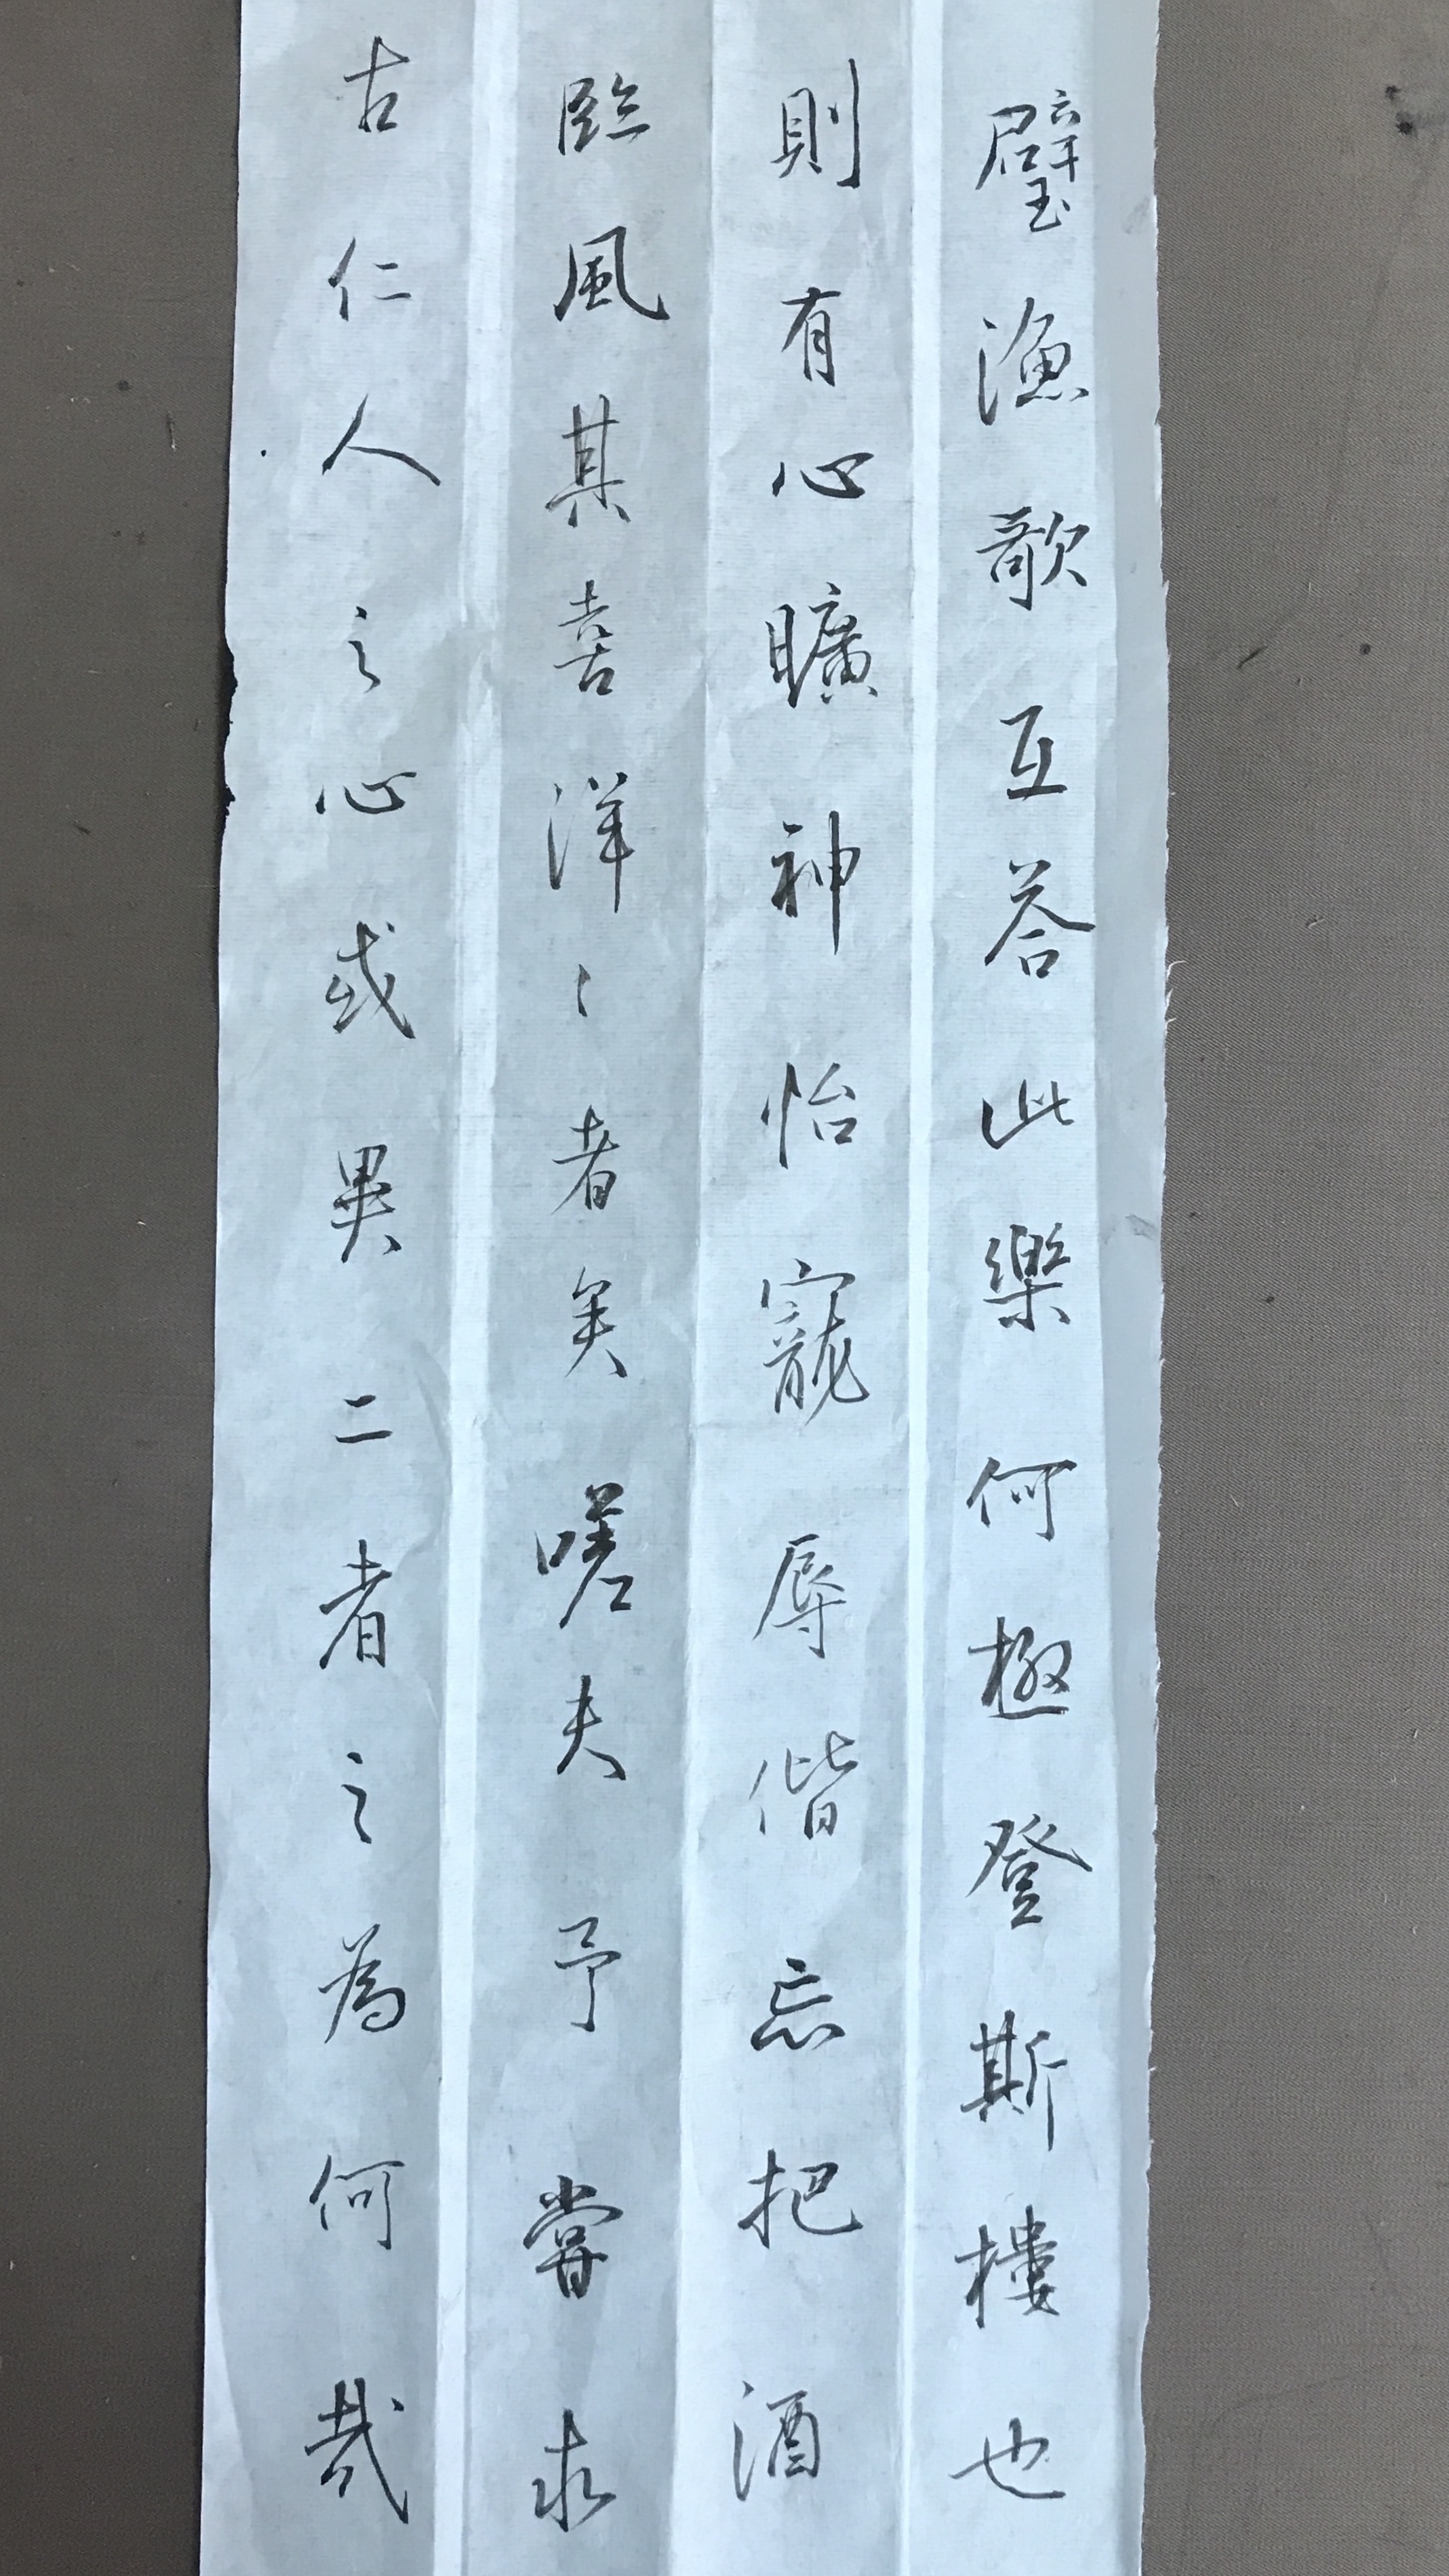 璧漁歌互荅此樂何極登斯樓也
則有心曠神怡寵辱偕忘把酒
臨風其喜洋〻者矣嗟夫予嘗求
古仁人之心或異二者之為何哉